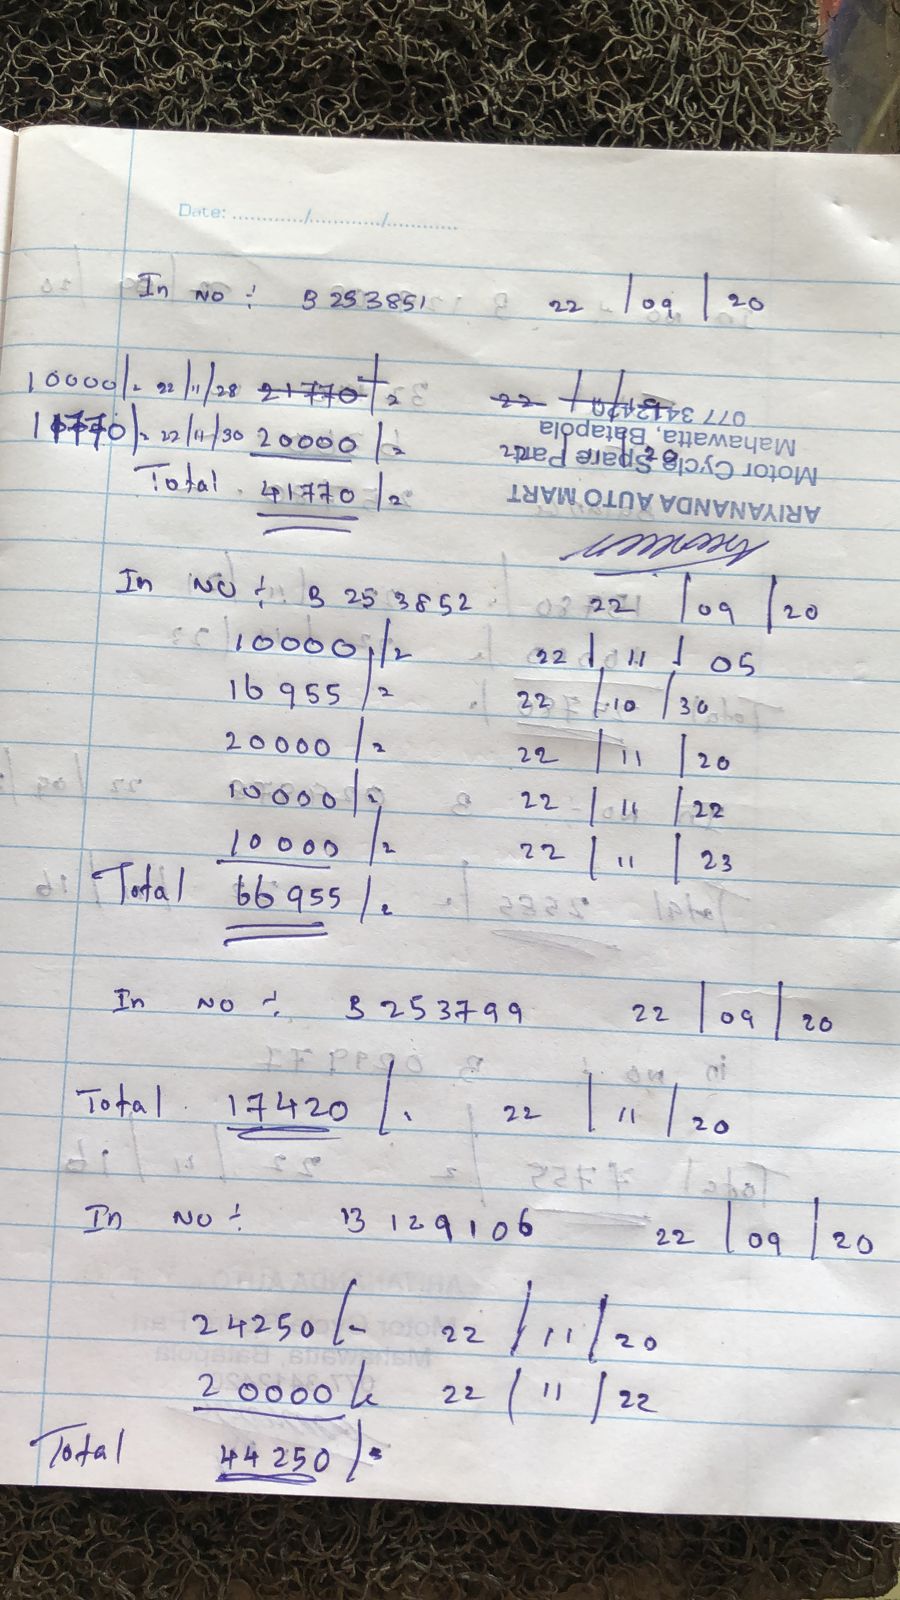 Date: ............/............/............
In No ÷ B 253851 22/09/20
10000/= 22/11/28 21770/=
22/11/30 20000/=
Total 41770/=
ARIYANANDA AUTO MART
Motor Cycle Spare Part
Mahawatta, Batapola
077 3412420
In No ÷ B 253852 22/09/20
10000/= 22/11/05
16955/= 22/10/30
20000/= 22/11/20
10000/= 22/11/22
10000/= 22/11/23
Total 66955/=
In No ÷ B 253799 22/09/20
Total 17420/. 22/11/20
In No ÷ B 129106 22/09/20
24250/- 22/11/20
20000/= 22/11/22
Total 44250/=